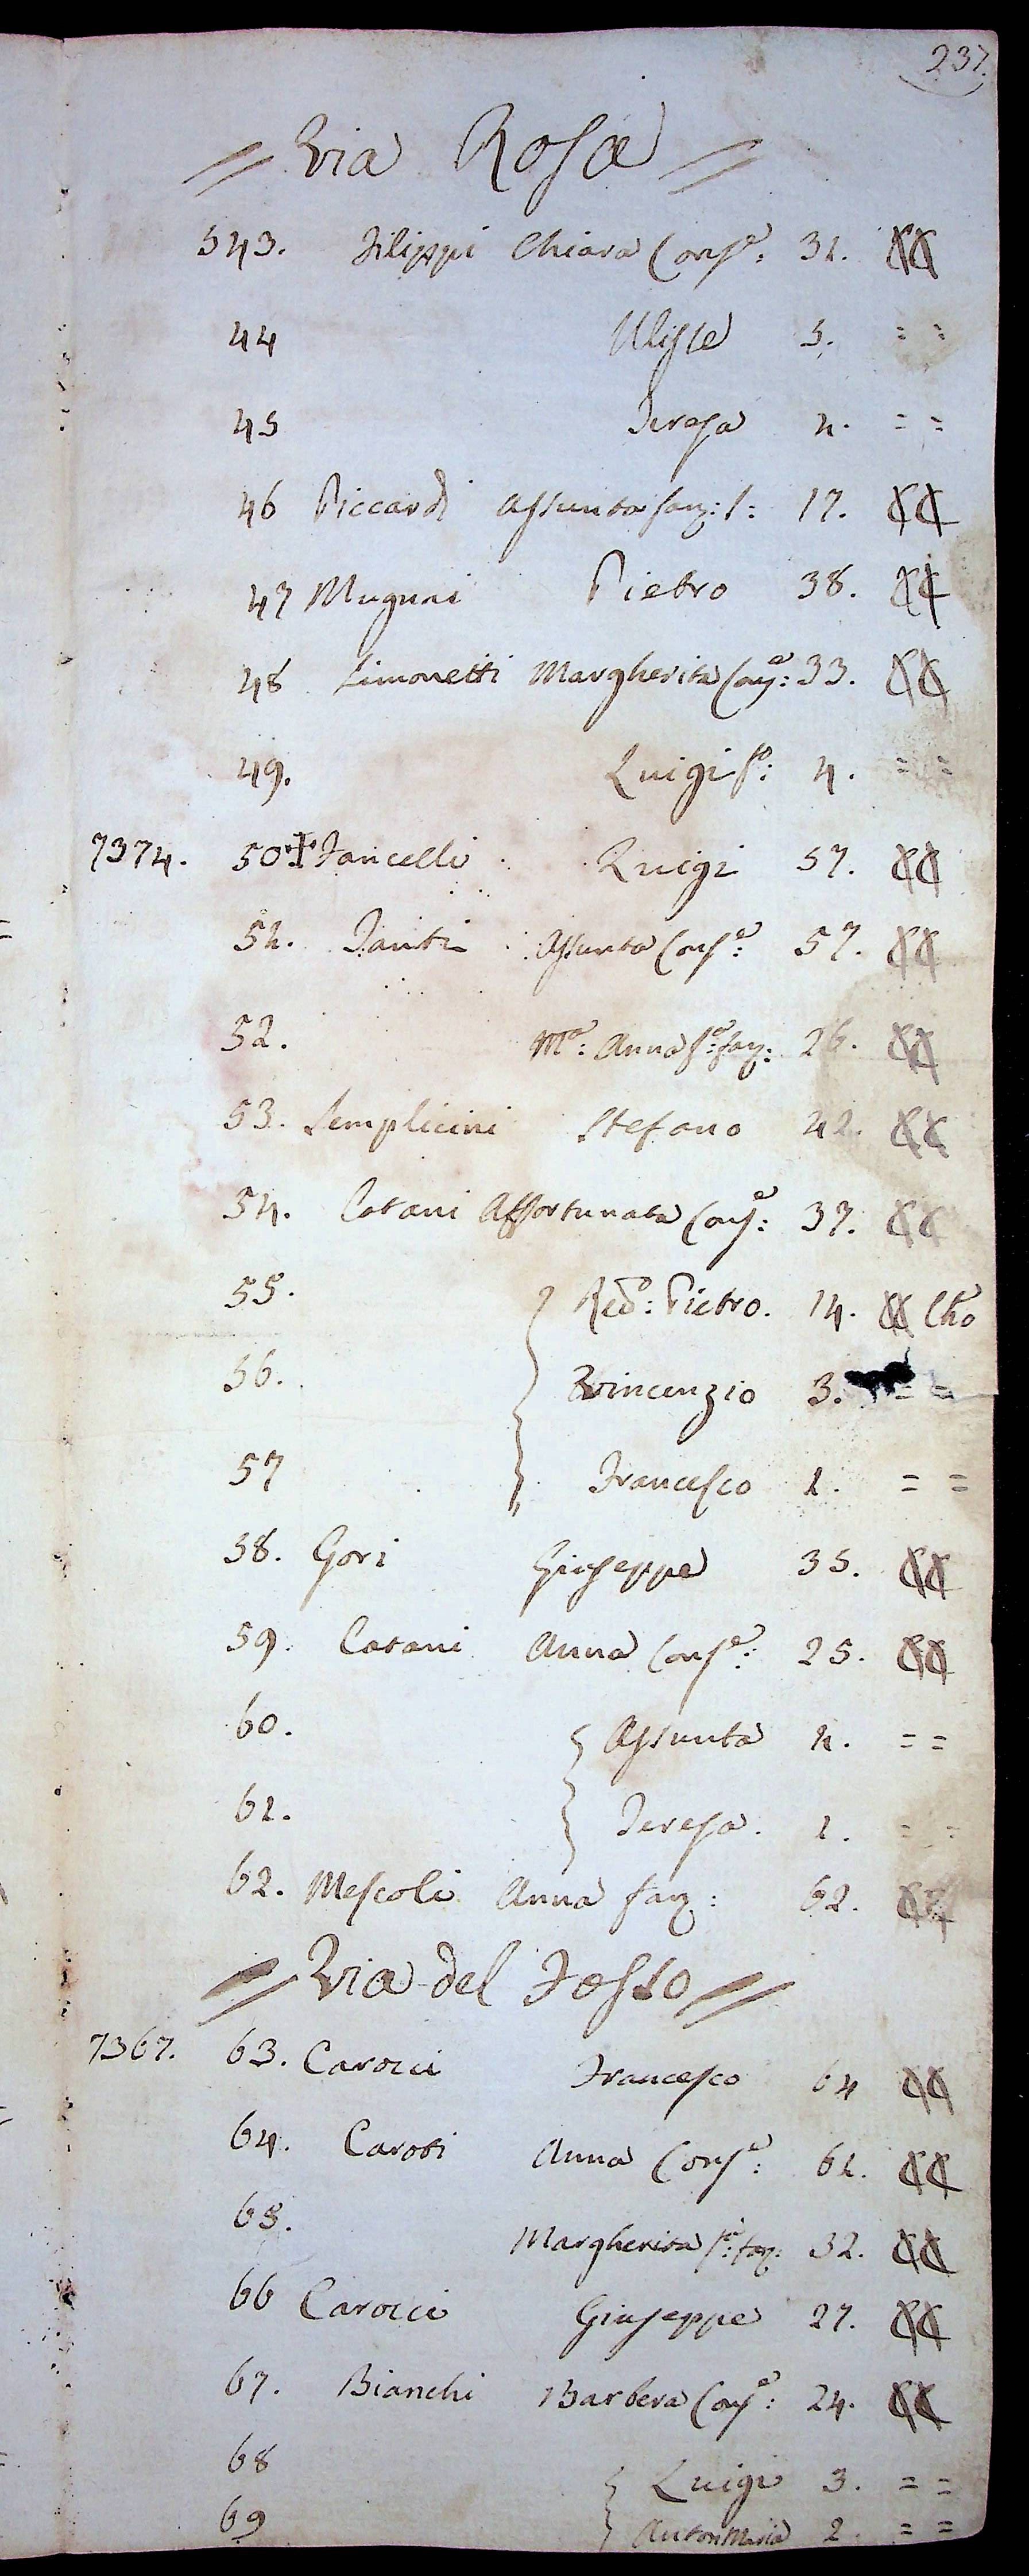 237.
// Via Rosa //
543. Filippi Chiara Conse: 31. CC
44 Ulisse 5. = =
45 Teresa 2. = =
46 Piccardi Assunta fanz: s: 17. CC
47 Mugnai Pietro 38. CC
48 Simonetti Margherita Conse: 33. CC
49. Luigi fo: 4. = =
7374. 50 ✝ Fancelli Luigi 57. CC
51. Fanti Assunta Conse: 57. CC
52. Ma: Anna fa: fanz: 26. CC
53. Semplicini Stefano 42. CC
54. Catani Affortunata Conse: 37. CC
55. Redo: Pietro. 14. CC Cho
56. Vincenzio 3. = =
57 Francesco 1. = =
58. Gori Giuseppe 35. CC
59. Catani Anna Conse: 25. CC
60. Assunta 2. = =
61. Teresa. 1. = =
62. Mescoli Anna fanz: 62. CC
// Via del Fosso //
7367. 63. Carocci Francesco 64 CC
64. Caroti Anna Conse: 61. CC
65. Margherita fa: fanz: 32. CC
66 Carocci Giuseppe 27. CC
67. Bianchi Barbera Conse: 24. CC
68 Luigi 3. = =
69 Anton Maria 2 = =